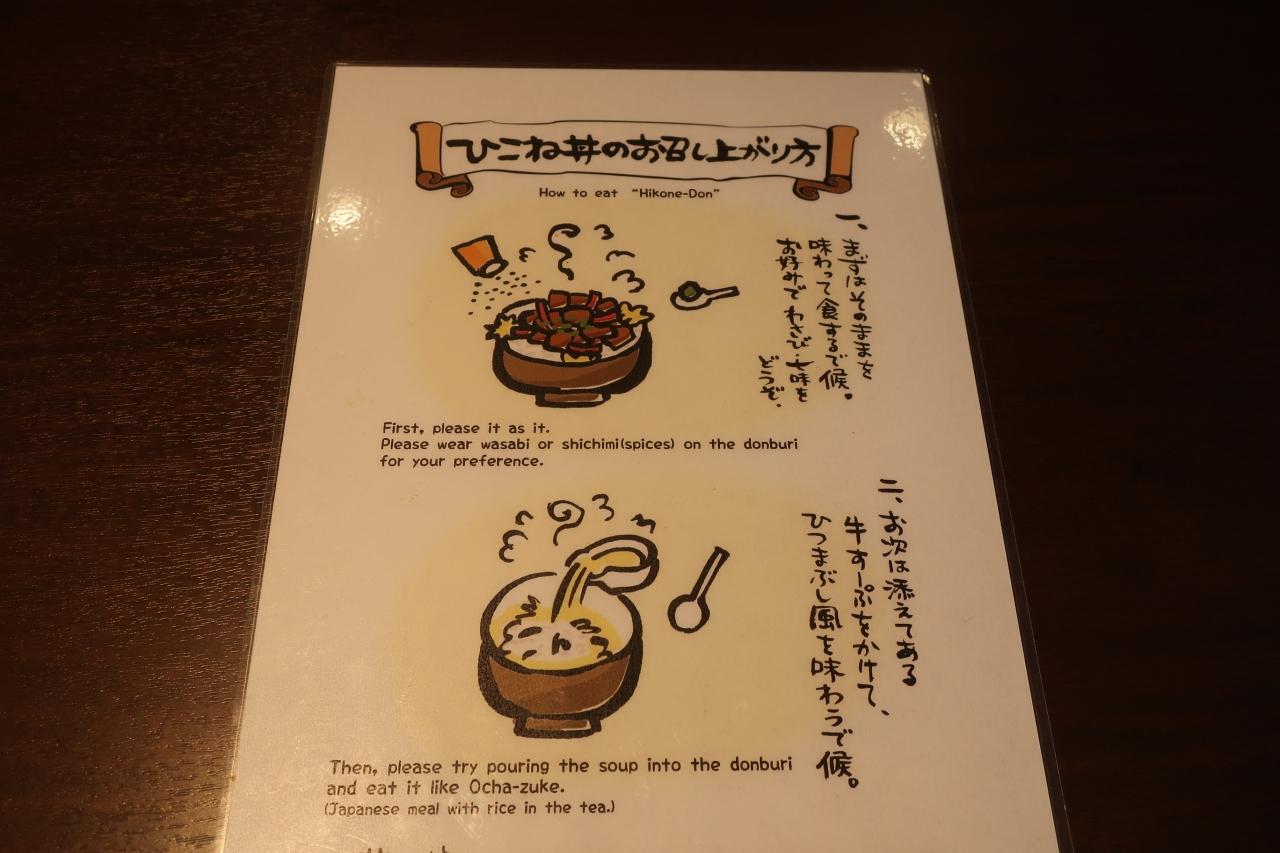 ひこね丼のお召し上がり方
How to eat “Hikone-Don”
一、まずはそのままを
味わって食するで候。
お好みでわさび・七味を
どうぞ。
First, please it as it.
Please wear wasabi or shichimi(spices) on the donburi
for your preference.
二、お次は添えてある
牛すーぷをかけて、
ひつまぶし風を味わうで候。
Then, please try pouring the soup into the donburi
and eat it like Ocha-zuke.
(Japanese meal with rice in the tea.)